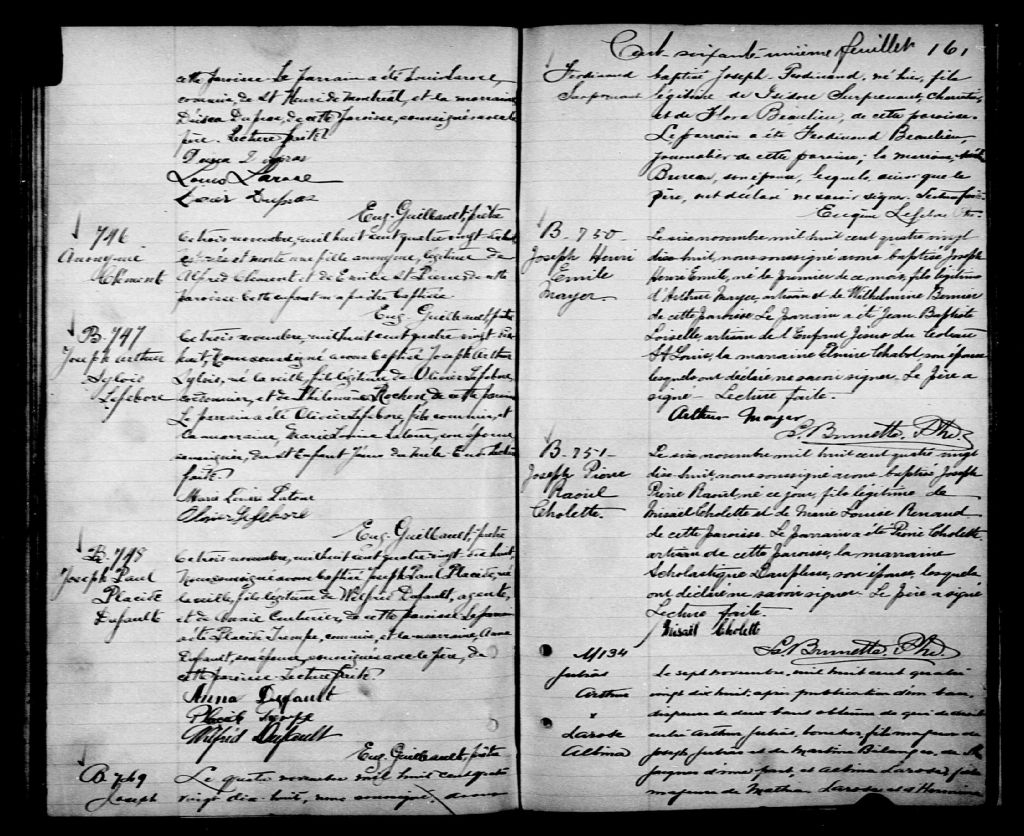 cette paroisse. Le parrain a été Louis Larose,
commis, de St Henri de Montréal, et la marraine
Dupras, de cette paroisse, consignés avec le
père. Lecture faite.
Louis Larose
Dupras
Eug. Guilbault, ptre
746
Anonyme
Clement
Le trois novembre, mil huit cent quatre vingt dix huit
est née et morte une fille anonyme, légitime de
Alfred Clement et de Emilie St Pierre de cette
paroisse. Cette enfant n'a pu être baptisée
Eug. Guilbault, ptre
B-747
Joseph Arthur
Sylvio
Lefebvre
Le trois novembre, mil huit cent quatre vingt dix
huit, Nous soussigné avons baptisé Joseph Arthur
Sylvio, né la veille, fils légitime de Olivier Lefebvre,
cordonnier, et de Philomène de cette paroisse
Le parrain a été Olivier Lefebvre, fils commis, et
la marraine, Marie Louise Latour, son épouse
soussignés, du St Enfant Jésus du Mile End. Lecture
faite.
Marie Louise Latour
Olivier Lefebvre
Eug. Guilbault, prêtre
B-748
Joseph Paul
Placide
Dufault
Le trois novembre, mil huit cent quatre vingt dix huit,
Nous soussigné avons baptisé Joseph Paul Placide, né
la veille, fils légitime de Wilfrid Dufault, agent,
et de Marie Couturier, de cette paroisse. Le parrain
a été Placide Trempe, commis, et la marraine, Anna
Dufault, son épouse, consignés avec le père, de
cette paroisse. Lecture faite.
Anna Dufault
Placide
Wilfrid Dufault
Eug. Guilbault, prêtre
B 749
Joseph
Le quatre novembre mil huit cent quatre
vingt dix-huit, nous soussigné, avons
Cent-soixante-unième feuillet 161
Ferdinand
Surprenant
baptisé Joseph-Ferdinand, né hier, fils
légitime de Isidore Surprenant, charretier,
et de Flora Beaulieu, de cette paroisse.
Le parrain a été Ferdinand Beaulieu,
journalier de cette paroisse; la marraine,
Bureau, son épouse, lesquels, ainsi que le
père, ont déclaré ne savoir signer. Lecture faite.
Eugène Lefebvre Ptre.
B-750-
Joseph Henri
Emile
Mayer
Le six novembre mil huit cent quatre vingt
dix-huit, nous soussigné avons baptisé Joseph
Henri Emile, né le premier de ce mois, fils légitime
d'Arthur Mayer, artisan et de Wilhelmine Bernier
de cette paroisse Le parrain a été Jean Baptiste
Loiselle, artisan de l'Enfant Jésus du Coteau
St-Louis, la marraine Elmire Chabot, son épouse
lesquels ont déclaré ne savoir signer. Le père a
signé - Lecture faite.
Arthur Mayer
S. Brunette. Ptre.
B-751-
Joseph Pierre
Raoul
Cholette.
Le six novembre mil huit cent quatre vingt
dix-huit, nous soussigné avons baptisé Joseph
Pierre Raoul, né ce jour, fils légitime de
Misaël Cholette et de Marie Louise Renaud
de cette paroisse. Le parrain a été Pierre Cholette
artisan de cette paroisse, la marraine
Scholastique Dauplaise, son épouse, lesquels
ont déclaré ne savoir signer. Le père a signé
Lecture faite.
Misaël Cholett
S. Brunette. Ptre.
M134
Jubras
Arthur
x
Larose
Albina
Le sept novembre, mil huit cent quatre
vingt dix huit, après publication d'un ban,
dispense de deux bans obtenue de qui de droit
entre Arthur Jubras, boucher, fils majeur de
Joseph Jubras et de Martine Bélanger, de
d'une part, et Albina Larose, fille
majeure de Mathias Larose et d'Hermine